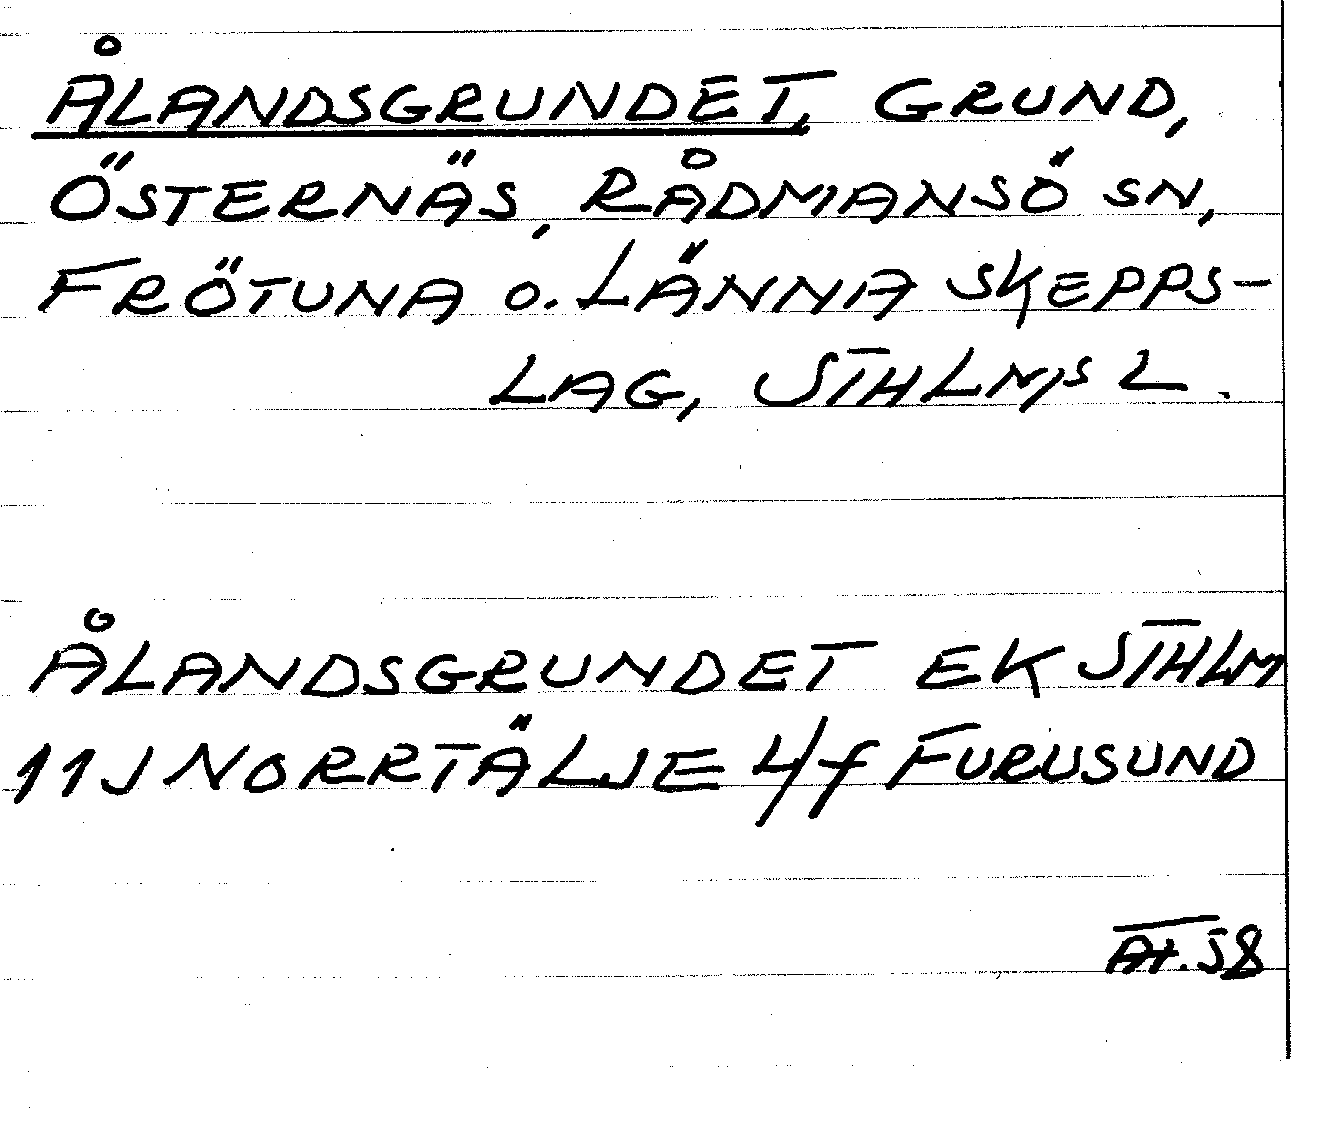 ÅLANDSGRUNDET, GRUND,
ÖSTERNÄS, RÅDMANSÖ SN,
FRÖTUNA o. LÄNNA SKEPPS-
LAG, STHLMS L.
ÅLANDSGRUNDET EK STHLM
11J NORRTÄLJE 4/f FURUSUND
58